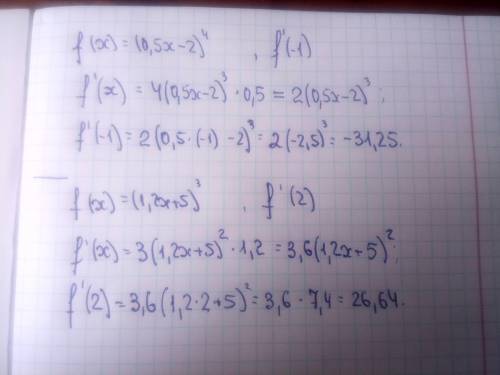 f(x) = (0,5x-2)⁴ , f'(-1)
f'(x) = 4(0,5x-2)³ · 0,5 = 2(0,5x-2)³;
f'(-1) = 2(0,5·(-1) -2)³ = 2(-2,5)³ = -31,25.
f(x) = (1,2x+5)³ , f'(2)
f'(x) = 3(1,2x+5)² · 1,2 = 3,6(1,2x+5)²;
f'(2) = 3,6(1,2·2+5)² = 3,6 · 7,4 = 26,64.